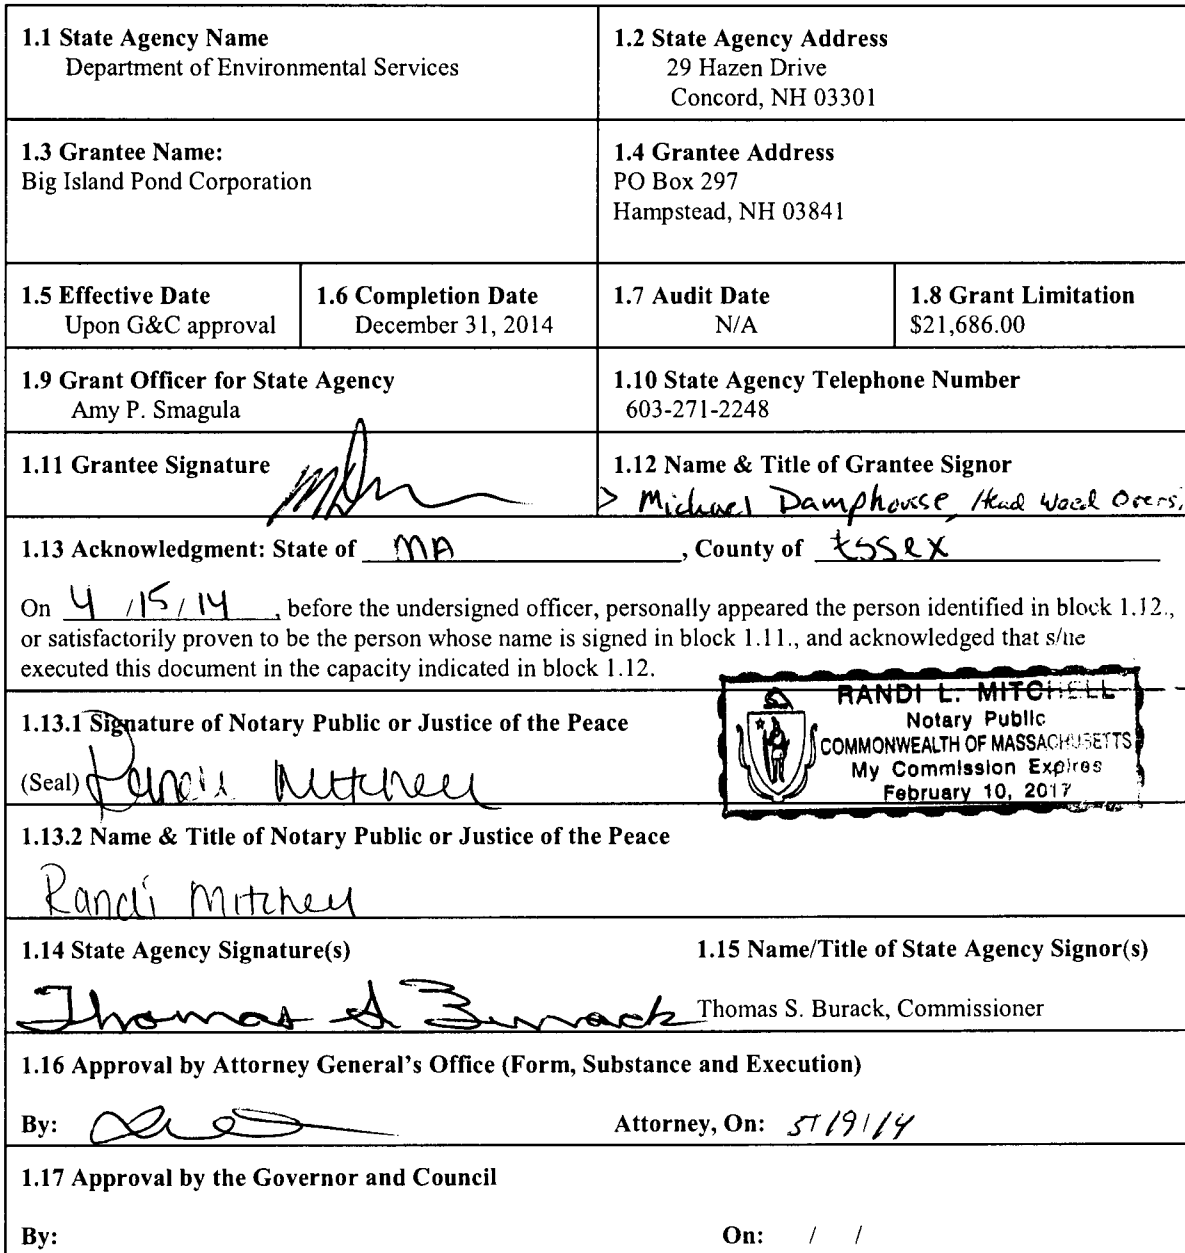 1.1 State Agency Name
Department of Environmental Services
1.2 State Agency Address
29 Hazen Drive
Concord, NH 03301
1.3 Grantee Name:
Big Island Pond Corporation
1.4 Grantee Address
PO Box 297
Hampstead, NH 03841
1.5 Effective Date
Upon G&C approval
1.6 Completion Date
December 31, 2014
1.7 Audit Date
N/A
1.8 Grant Limitation
$21,686.00
1.9 Grant Officer for State Agency
Amy P. Smagula
1.10 State Agency Telephone Number
603-271-2248
1.11 Grantee Signature
1.12 Name & Title of Grantee Signor
Michael Damphousse, Head Weed Overs.
1.13 Acknowledgment: State of MA, County of Essex
On 4/15/14, before the undersigned officer, personally appeared the person identified in block 1.12.,
or satisfactorily proven to be the person whose name is signed in block 1.11., and acknowledged that s/he
executed this document in the capacity indicated in block 1.12.
RANDI L. MITCHELL
Notary Public
COMMONWEALTH OF MASSACHUSETTS
My Commission Expires
February 10, 2017
1.13.1 Signature of Notary Public or Justice of the Peace
(Seal) Randi Mitchell
1.13.2 Name & Title of Notary Public or Justice of the Peace
Randi Mitchell
1.14 State Agency Signature(s)
Thomas S Burack
1.15 Name/Title of State Agency Signor(s)
Thomas S. Burack, Commissioner
1.16 Approval by Attorney General's Office (Form, Substance and Execution)
By: Attorney, On: 5/9/14
1.17 Approval by the Governor and Council
By: On: / /